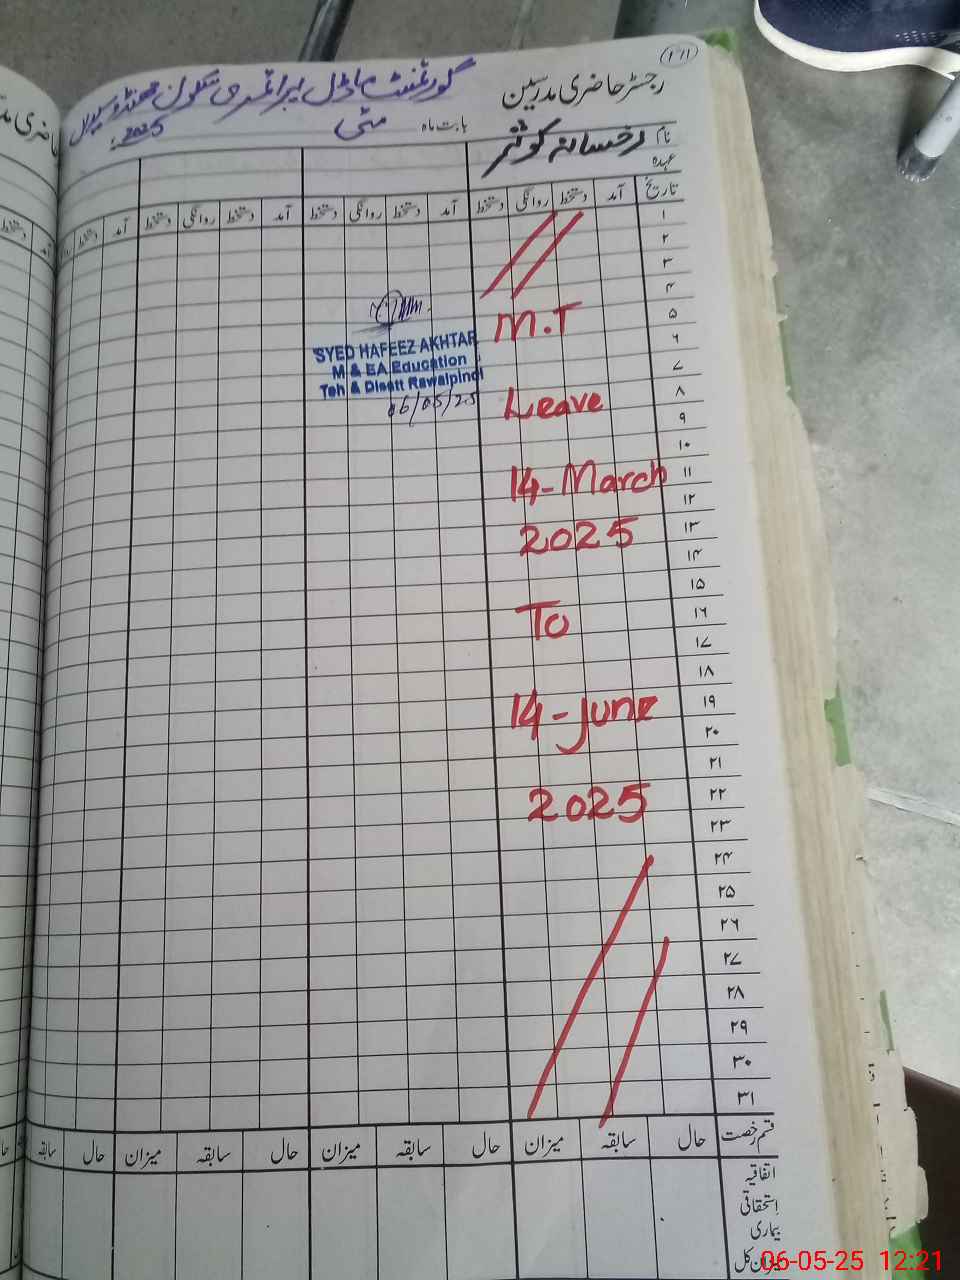 ۱۷۱
رجسٹر حاضری مدرسین
گورنمنٹ ماڈل پرائمری سکول جھنڈو سیداں
بابت ماہ مئی 2025ء
نام رخسانہ کوثر
عہدہ
تاریخ آمد دستخط روانگی دستخط آمد دستخط روانگی دستخط آمد دستخط روانگی دستخط آمد دستخط
۱
۲
۳
۴
۵
۶
۷
۸
۹
۱۰
۱۱
۱۲
۱۳
۱۴
۱۵
۱۶
۱۷
۱۸
۱۹
۲۰
۲۱
۲۲
۲۳
۲۴
۲۵
۲۶
۲۷
۲۸
۲۹
۳۰
۳۱
M.T
Leave
14-March
2025
To
14-June
2025
SYED HAFEEZ AKHTAR
M & EA Education
Teh & Distt Rawalpindi
06/05/25
قسم رخصت حال سابقہ میزان حال سابقہ میزان حال سابقہ میزان حال سابقہ
اتفاقیہ
استحقاقی
بیماری
میزان کل
06-05-25 12:21